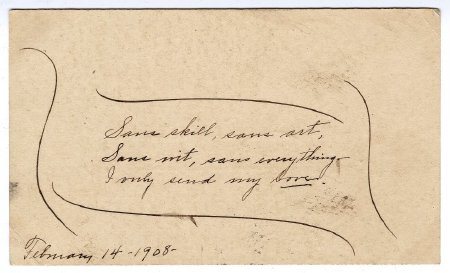 Sans skill, sans art,
Sans wit, sans everything
I only send my love.
February 14 - 1908 -